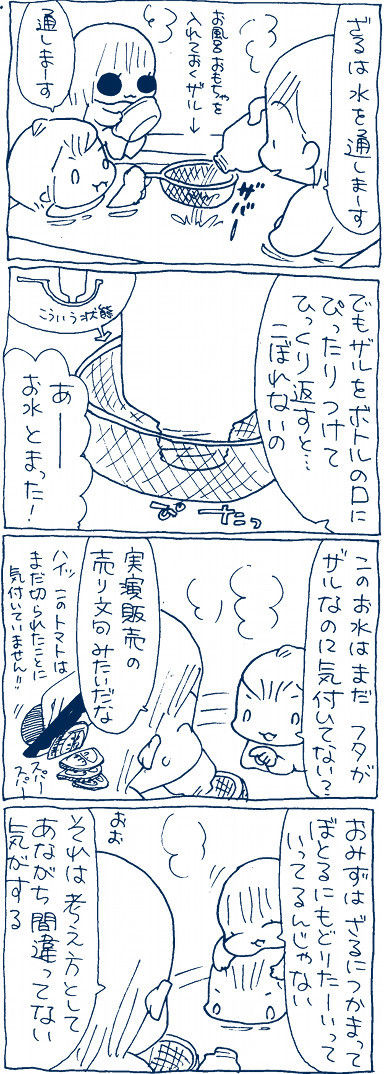 ざるは水を通しまーす
お風呂おもちゃを
入れておくザル→
通しまーす
ザバー
でもザルをボトルの口に
ぴったりつけて
ひっくり返すと…
こぼれないの
こういう状態
あーー
お水とまった!
ぴたっ
このお水はまだフタが
ザルなのに気付いてない?
実演販売の
売り文句みたいだな
ハイッこのトマトは
まだ切られたことに
気付いていません!!
スパー
スパー
おみずはざるにつかまって
ぼとるにもどりたーいって
いってるんじゃない
おお
それは考え方として
あながち間違ってない
気がする